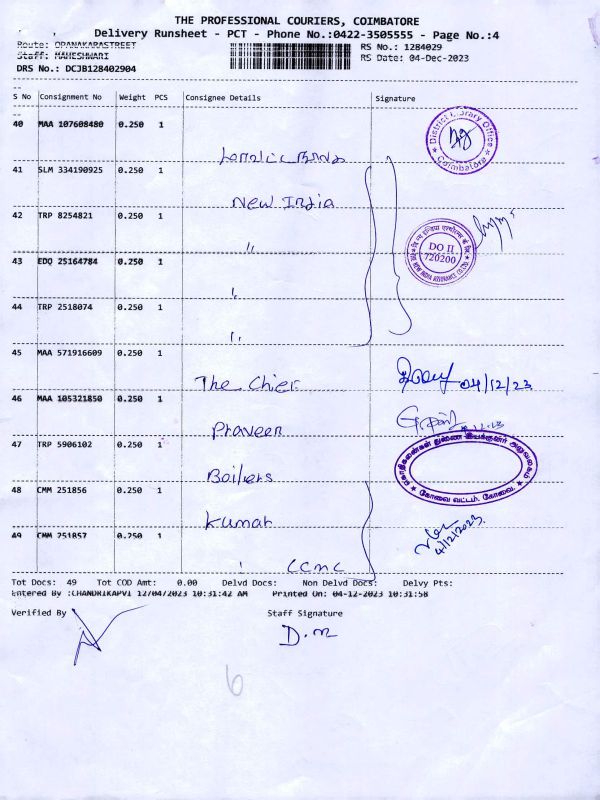 THE PROFESSIONAL COURIERS, COIMBATORE
Delivery Runsheet - PCT - Phone No.:0422-3505555 - Page No.:4
Route: OPANAKARASTREET RS No.: 1284029
Staff: MAHESHWARI RS Date: 04-Dec-2023
DRS No.: DCJB128402904
S No Consignment No Weight PCS Consignee Details Signature
40 MAA 107608480 0.250 1
District Library Office
* Coimbatore *
41 SLM 334190925 0.250 1
New India
42 TRP 8254821 0.250 1
"
DO II
720200
43 EDQ 25164784 0.250 1
"
44 TRP 2518074 0.250 1
"
45 MAA 571916609 0.250 1
The Chief
04/12/23
46 MAA 105321850 0.250 1
Praveen
47 TRP 5906102 0.250 1
Boilers
* கோவை வட்டம், கோவை. *
48 CMM 251856 0.250 1
Kumar
4/12/2023
49 CMM 251857 0.250 1
CCMC
Tot Docs: 49 Tot COD Amt: 0.00 Delvd Docs: Non Delvd Docs: Delvy Pts:
Entered By :CHANDRIKAPVI 12/04/2023 10:31:42 AM Printed On: 04-12-2023 10:31:58
Verified By Staff Signature
D.M
6